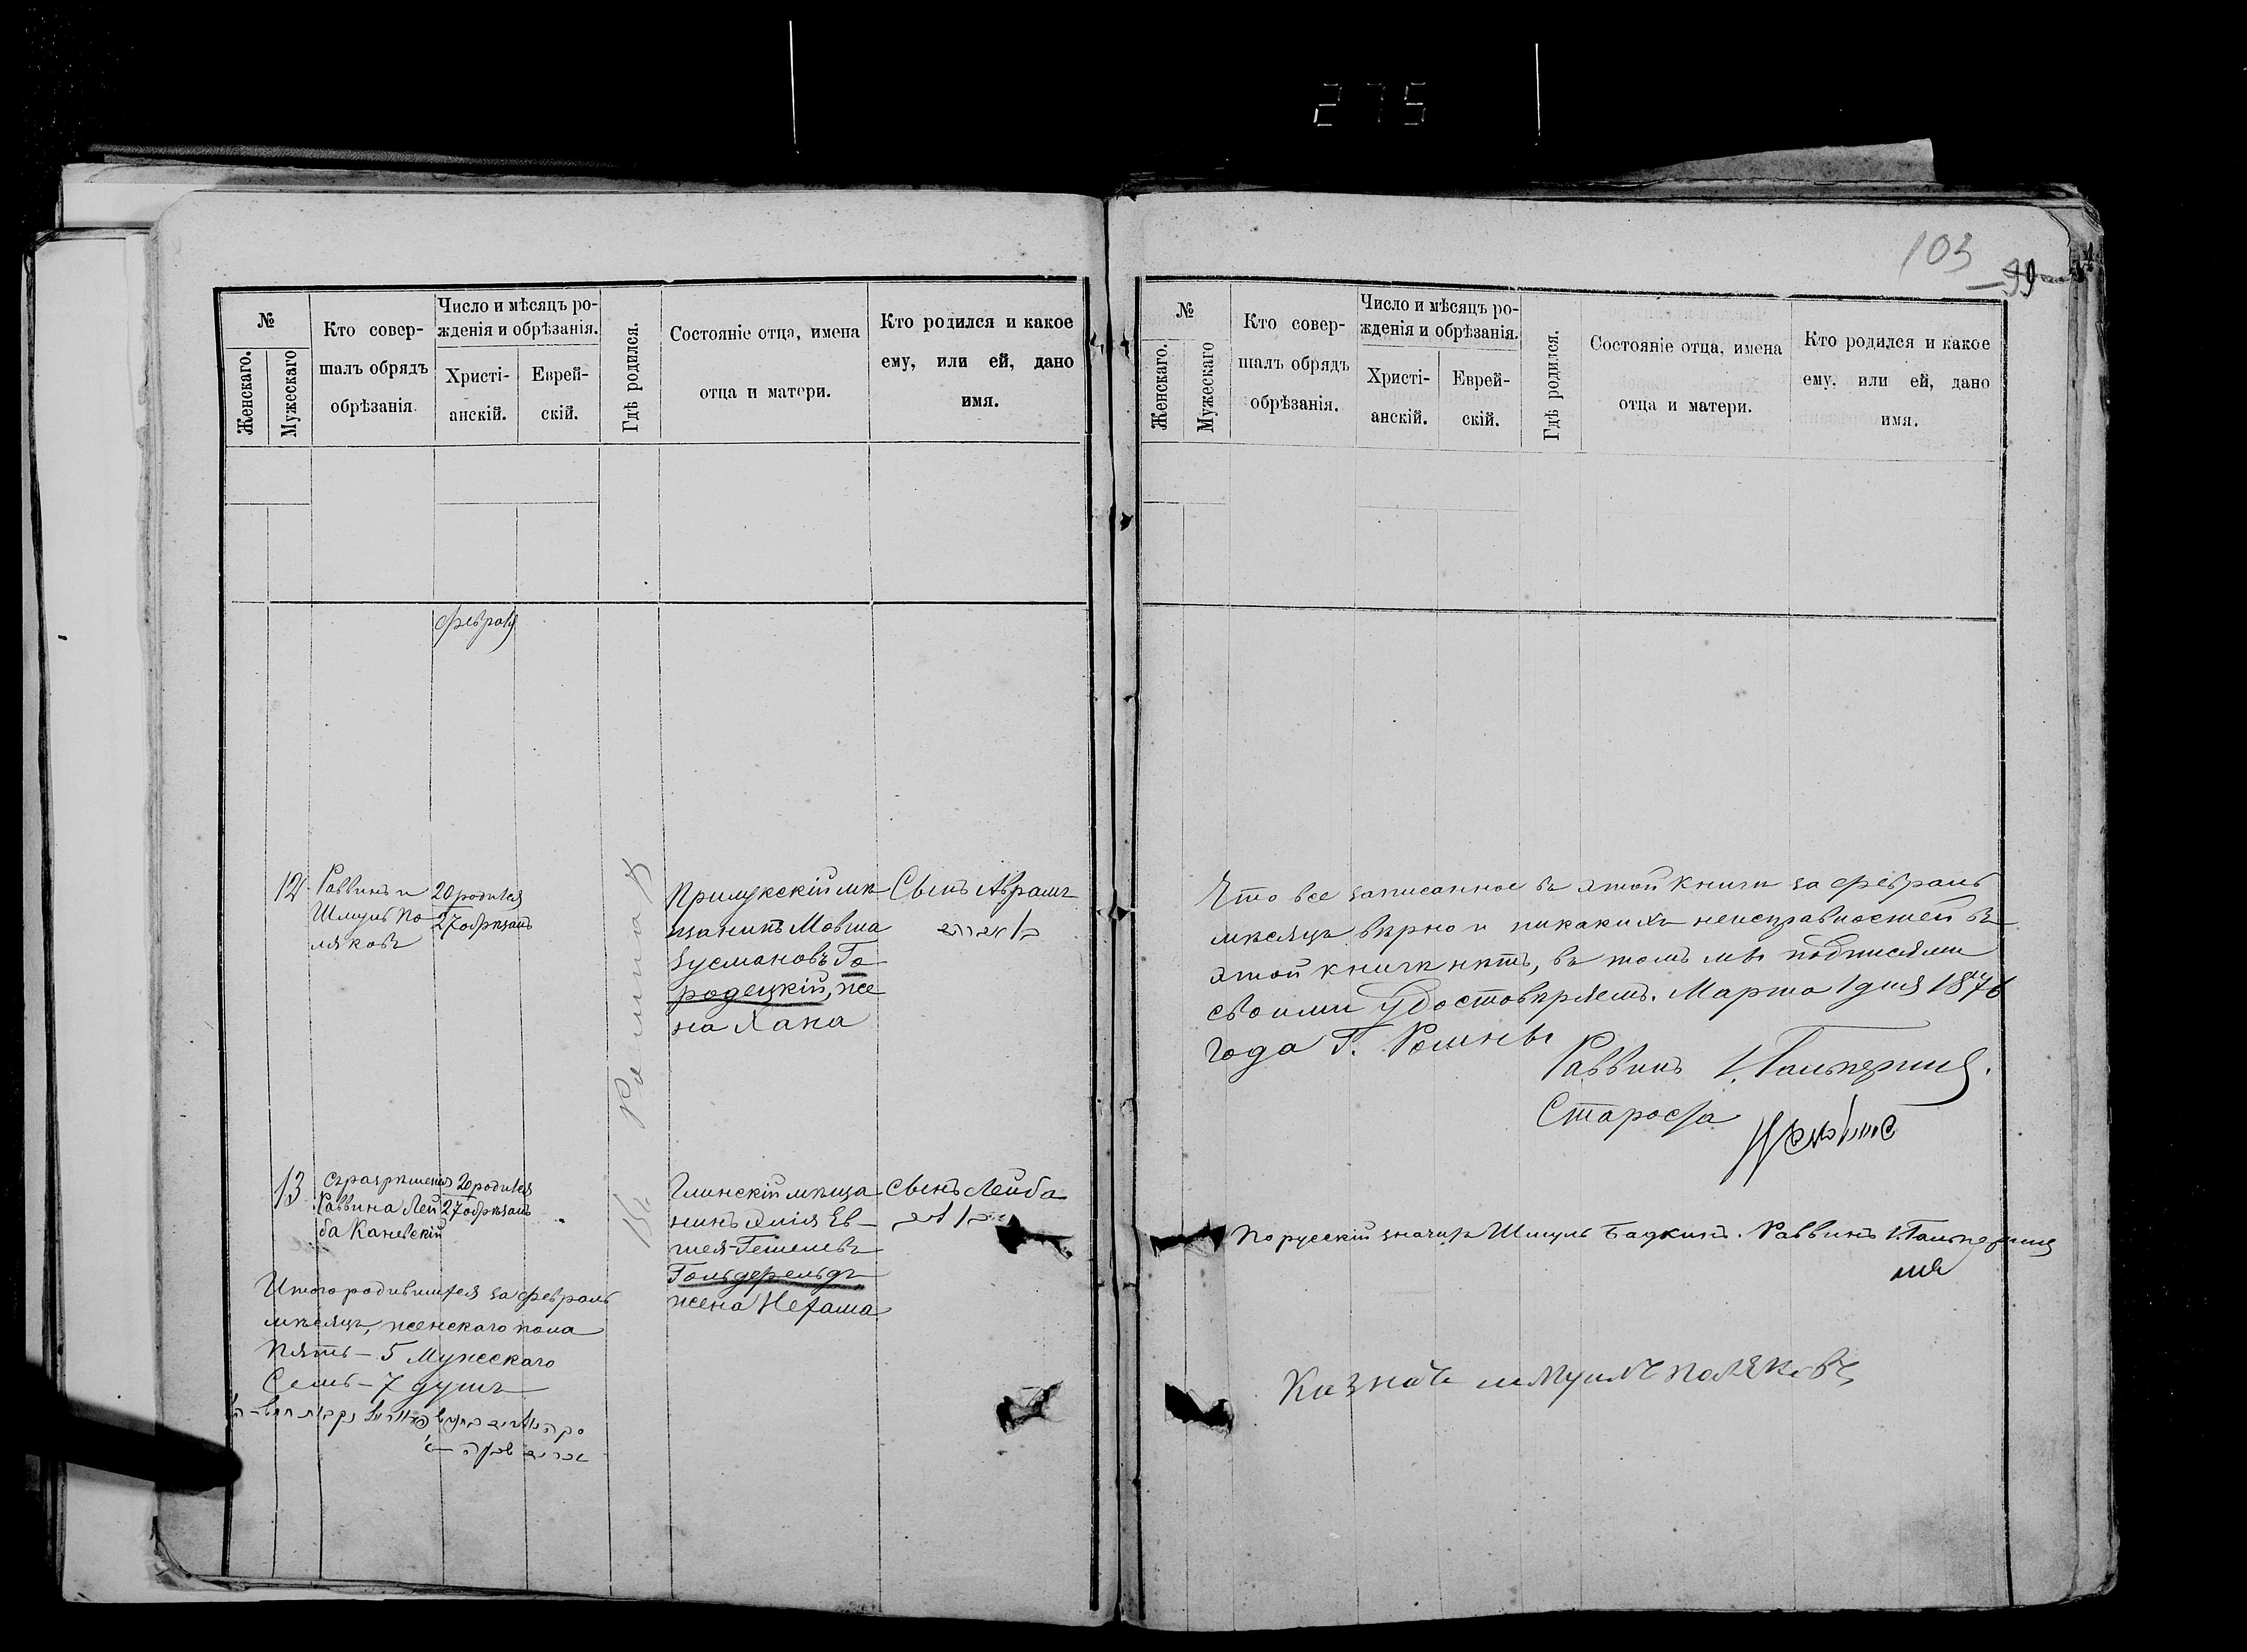 275
103
99
№
Женскаго.
Мужескаго
Кто совер-
шалъ обрядъ
обрѣзанія.
Число и мѣсяцъ ро-
жденія и обрѣзанія.
Христі-
анскій.
Еврей-
скій.
Гдѣ родился.
Состояніе отца, имена
отца и матери.
Кто родился и какое
ему, или ей, дано
имя.
февраля
12
Раввинъ и
Шмуль По-
ляковъ
20 родился
27 обрѣзанъ
Въ Ромнахъ
Прилукскій мѣ
щанинъ Мовша
Зусмановъ Го
родецкій, же
на Хана
Сынъ Аврамъ
13
Съ разрѣшенія
Раввина Лей
ба Каневскій
20 родился
27 обрѣзанъ
Глинскій мѣща
нинъ
Гольдфельдъ
жена Нехама
Сынъ Лейба
Итого родившихся за февраль
мѣсяцъ, женскаго пола
пять - 5 Мужескаго
Семь - 7 душъ
№
Женскаго.
Мужескаго
Кто совер-
шалъ обрядъ
обрѣзанія.
Число и мѣсяцъ ро-
жденія и обрѣзанія.
Христі-
анскій.
Еврей-
скій.
Гдѣ родился.
Состояніе отца, имена
отца и матери.
Кто родился и какое
ему, или ей, дано
имя.
Что все записанное въ этой книги за февраль
мѣсяцъ вѣрно и никакихъ неисправностей въ
этой книгѣ нѣтъ, въ томъ мы подписями
своими удостовѣряемъ. Марта 1 дня 1876
года Г. Ромны
Раввинъ И. Гальперинъ.
Староста
По русскій значитъ Шмуль Бадкинъ. Раввинъ И. Гальперинъ
Казначе шмуиль поляковъ